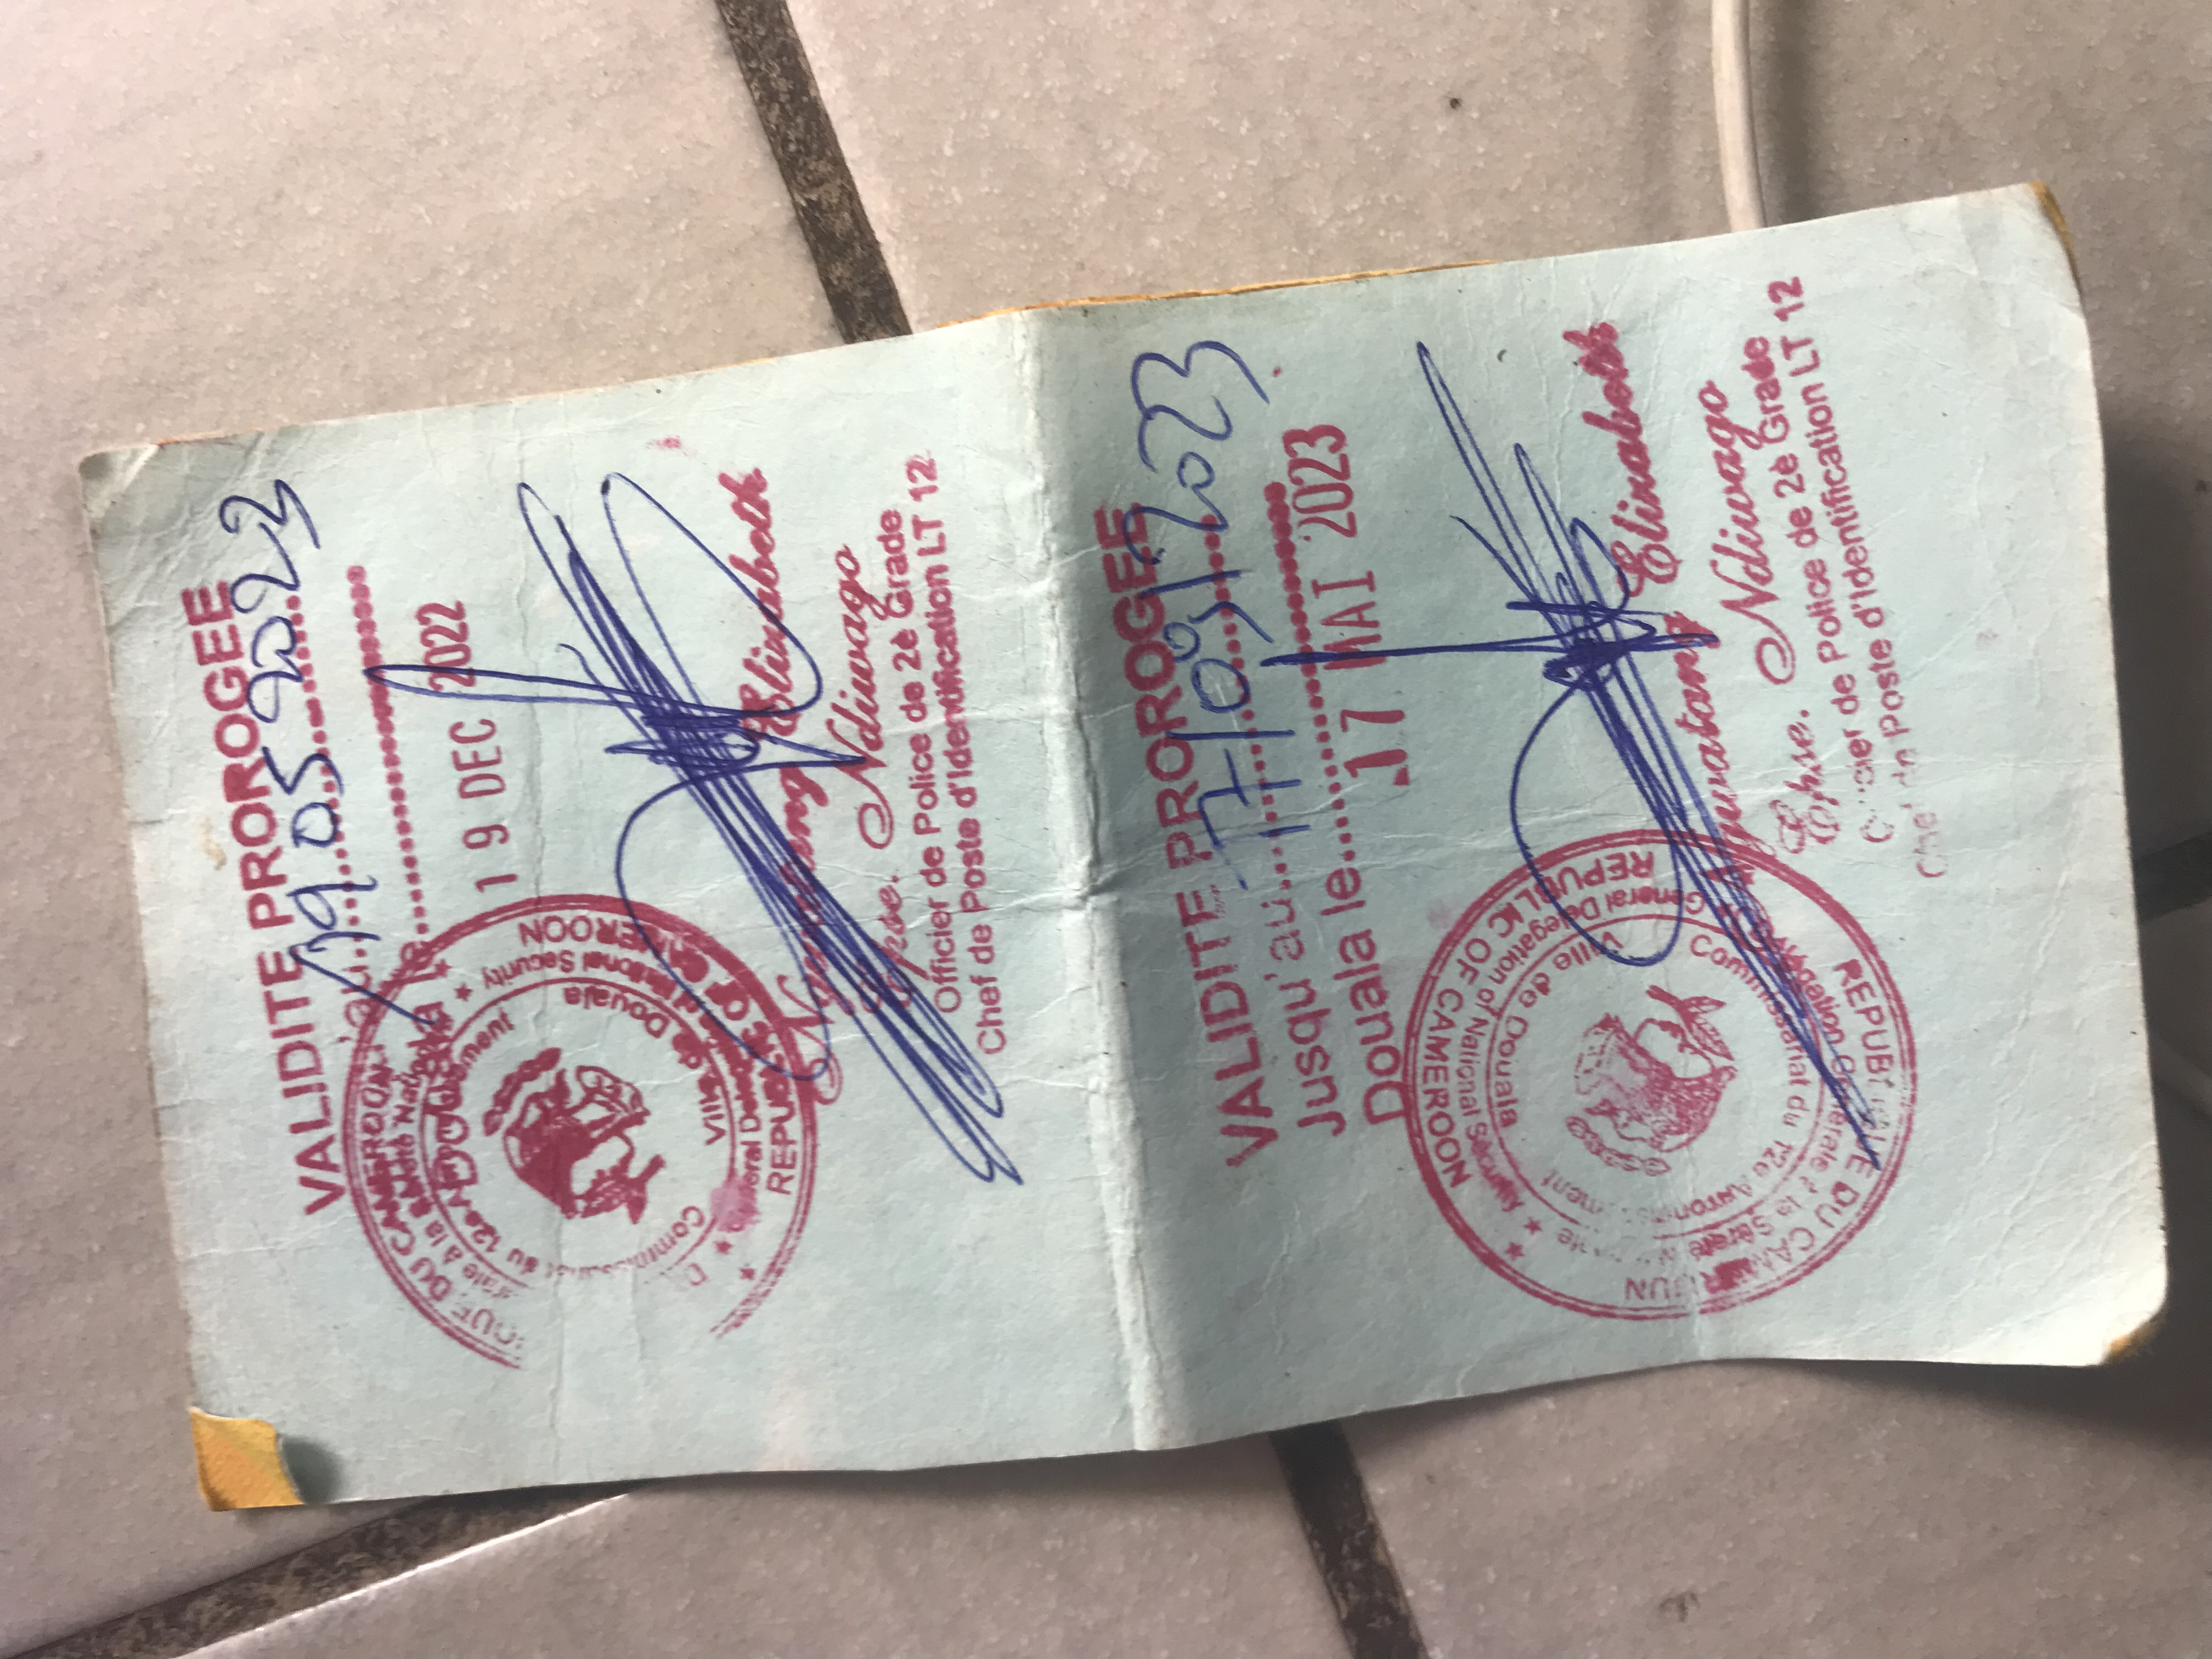 VALIDITE PROROGEE
19 05 2023
19 DEC 2022
REPUBLIQUE DU CAMEROUN
12e Arrondissement
Ville de Douala
General Delegation of National Security
REPUBLIC OF CAMEROON
Ngwatang Elizabeth
Epse. Ndiwago
Officier de Police de 2è Grade
Chef de Poste d'Identification LT 12
VALIDITE PROROGEE
Jusqu'au 17/09/2023
Douala le
17 MAI 2023
REPUBLIQUE DU CAMEROUN
Délégation Générale à la Sûreté Nationale
Commissariat du 12e Arrondissement
Ville de Douala
General Delegation of National Security
REPUBLIC OF CAMEROON
Ngwatang Elizabeth
Epse. Ndiwago
Officier de Police de 2è Grade
Chef de Poste d'Identification LT 12